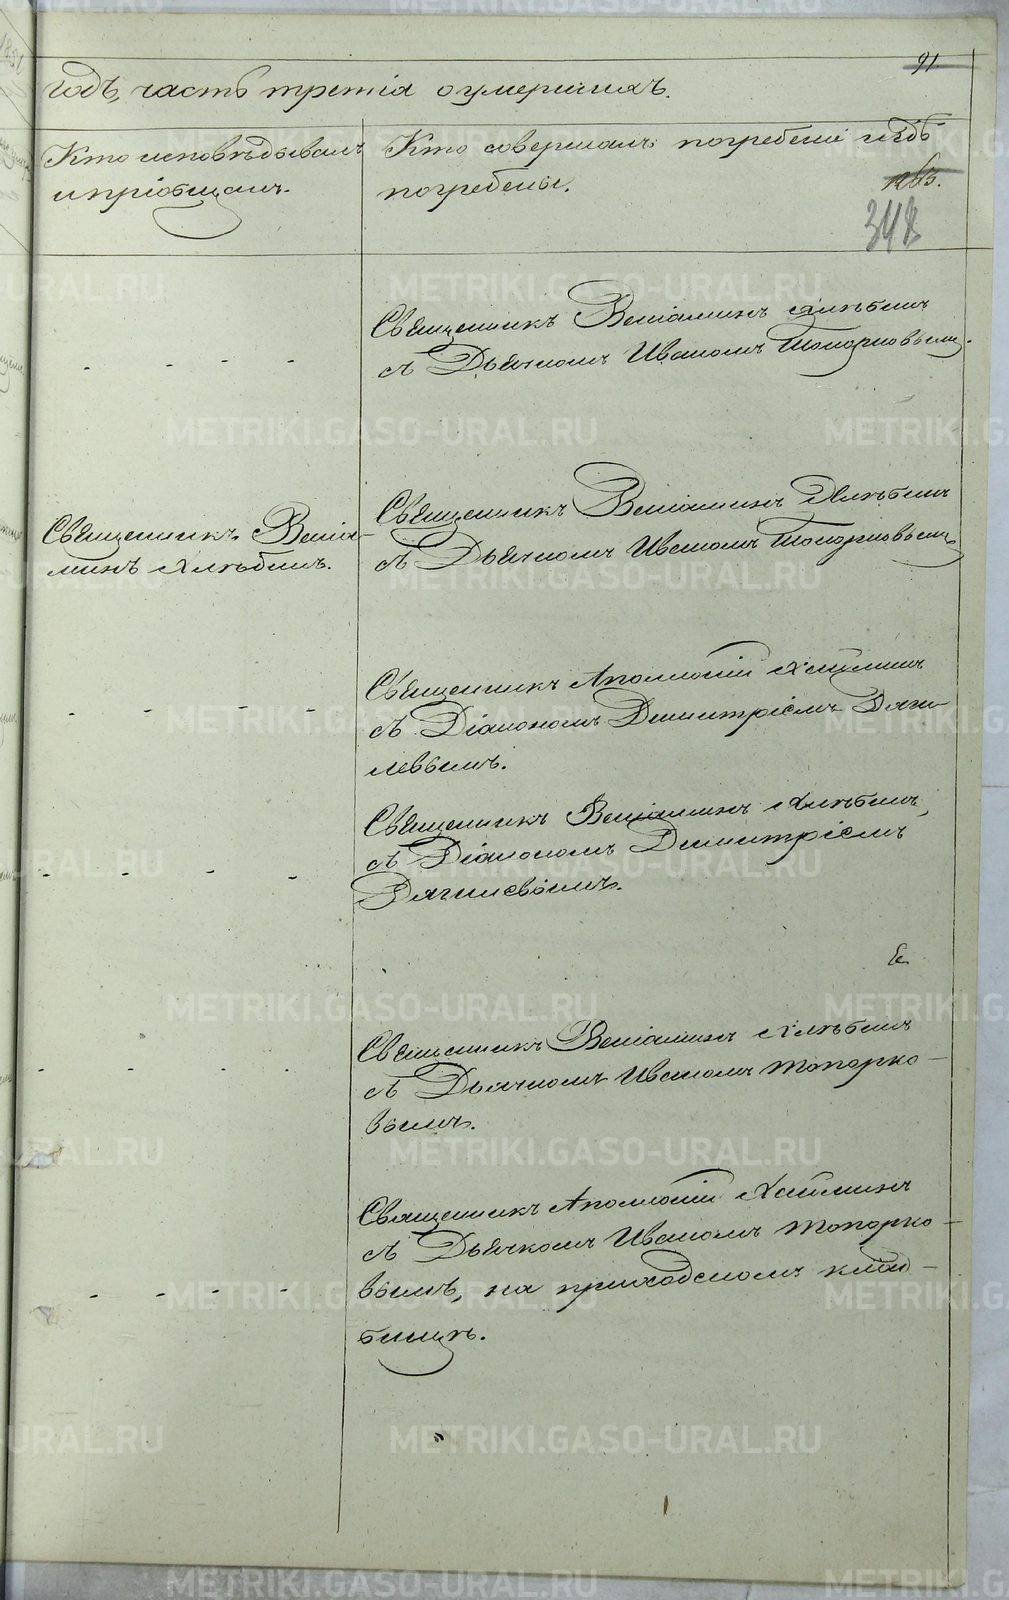 91
годъ, часть третія о умершихъ.
Кто исповѣдывалъ
и пріобщалъ.
Кто совершалъ погребеніе и гдѣ
погребены.
348
Священникъ Веніаминъ Хлѣбинъ
съ Дьячкомъ Иваномъ Топорковымъ.
Священникъ Веніа-
минъ Хлѣбинъ.
Священникъ Веніаминъ Хлѣбинъ
съ Дьячкомъ Иваномъ Топорковымъ
Священникъ Аполлоній
съ Діакономъ Димитріемъ Дяги-
левымъ.
Священникъ Веніаминъ Хлѣбинъ,
съ Діакономъ Димитріемъ
Дягилевымъ.
Священникъ Веніаминъ Хлѣбинъ
съ Дьячкомъ Иваномъ Топорко-
вымъ.
Священникъ Аполлоній
съ Дьячкомъ Иваномъ Топорко-
вымъ, на приходскомъ клад-
бищѣ.
METRIKI.GASO-URAL.RU